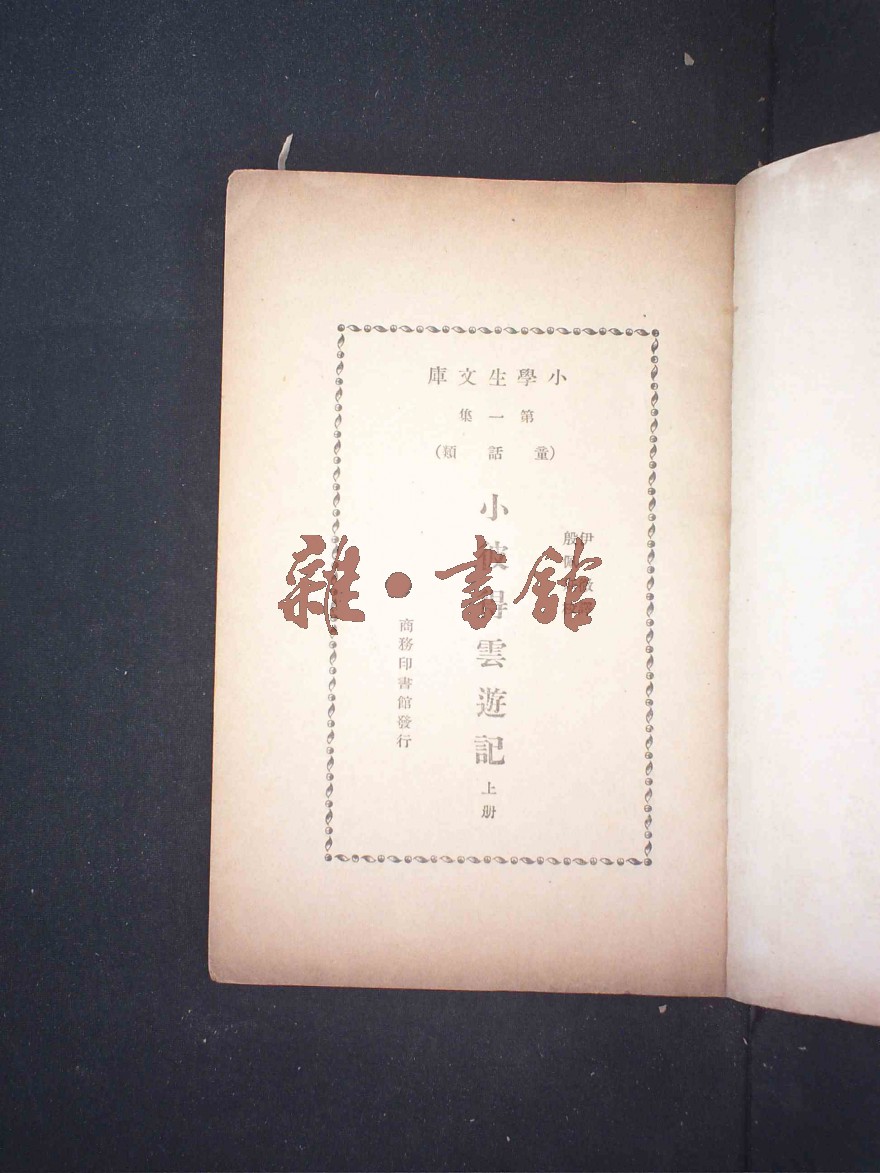 小學生文庫
第一集
(童話類)
伊
殷佩
小彼得雲遊記
上册
商務印書館發行
雜·書館